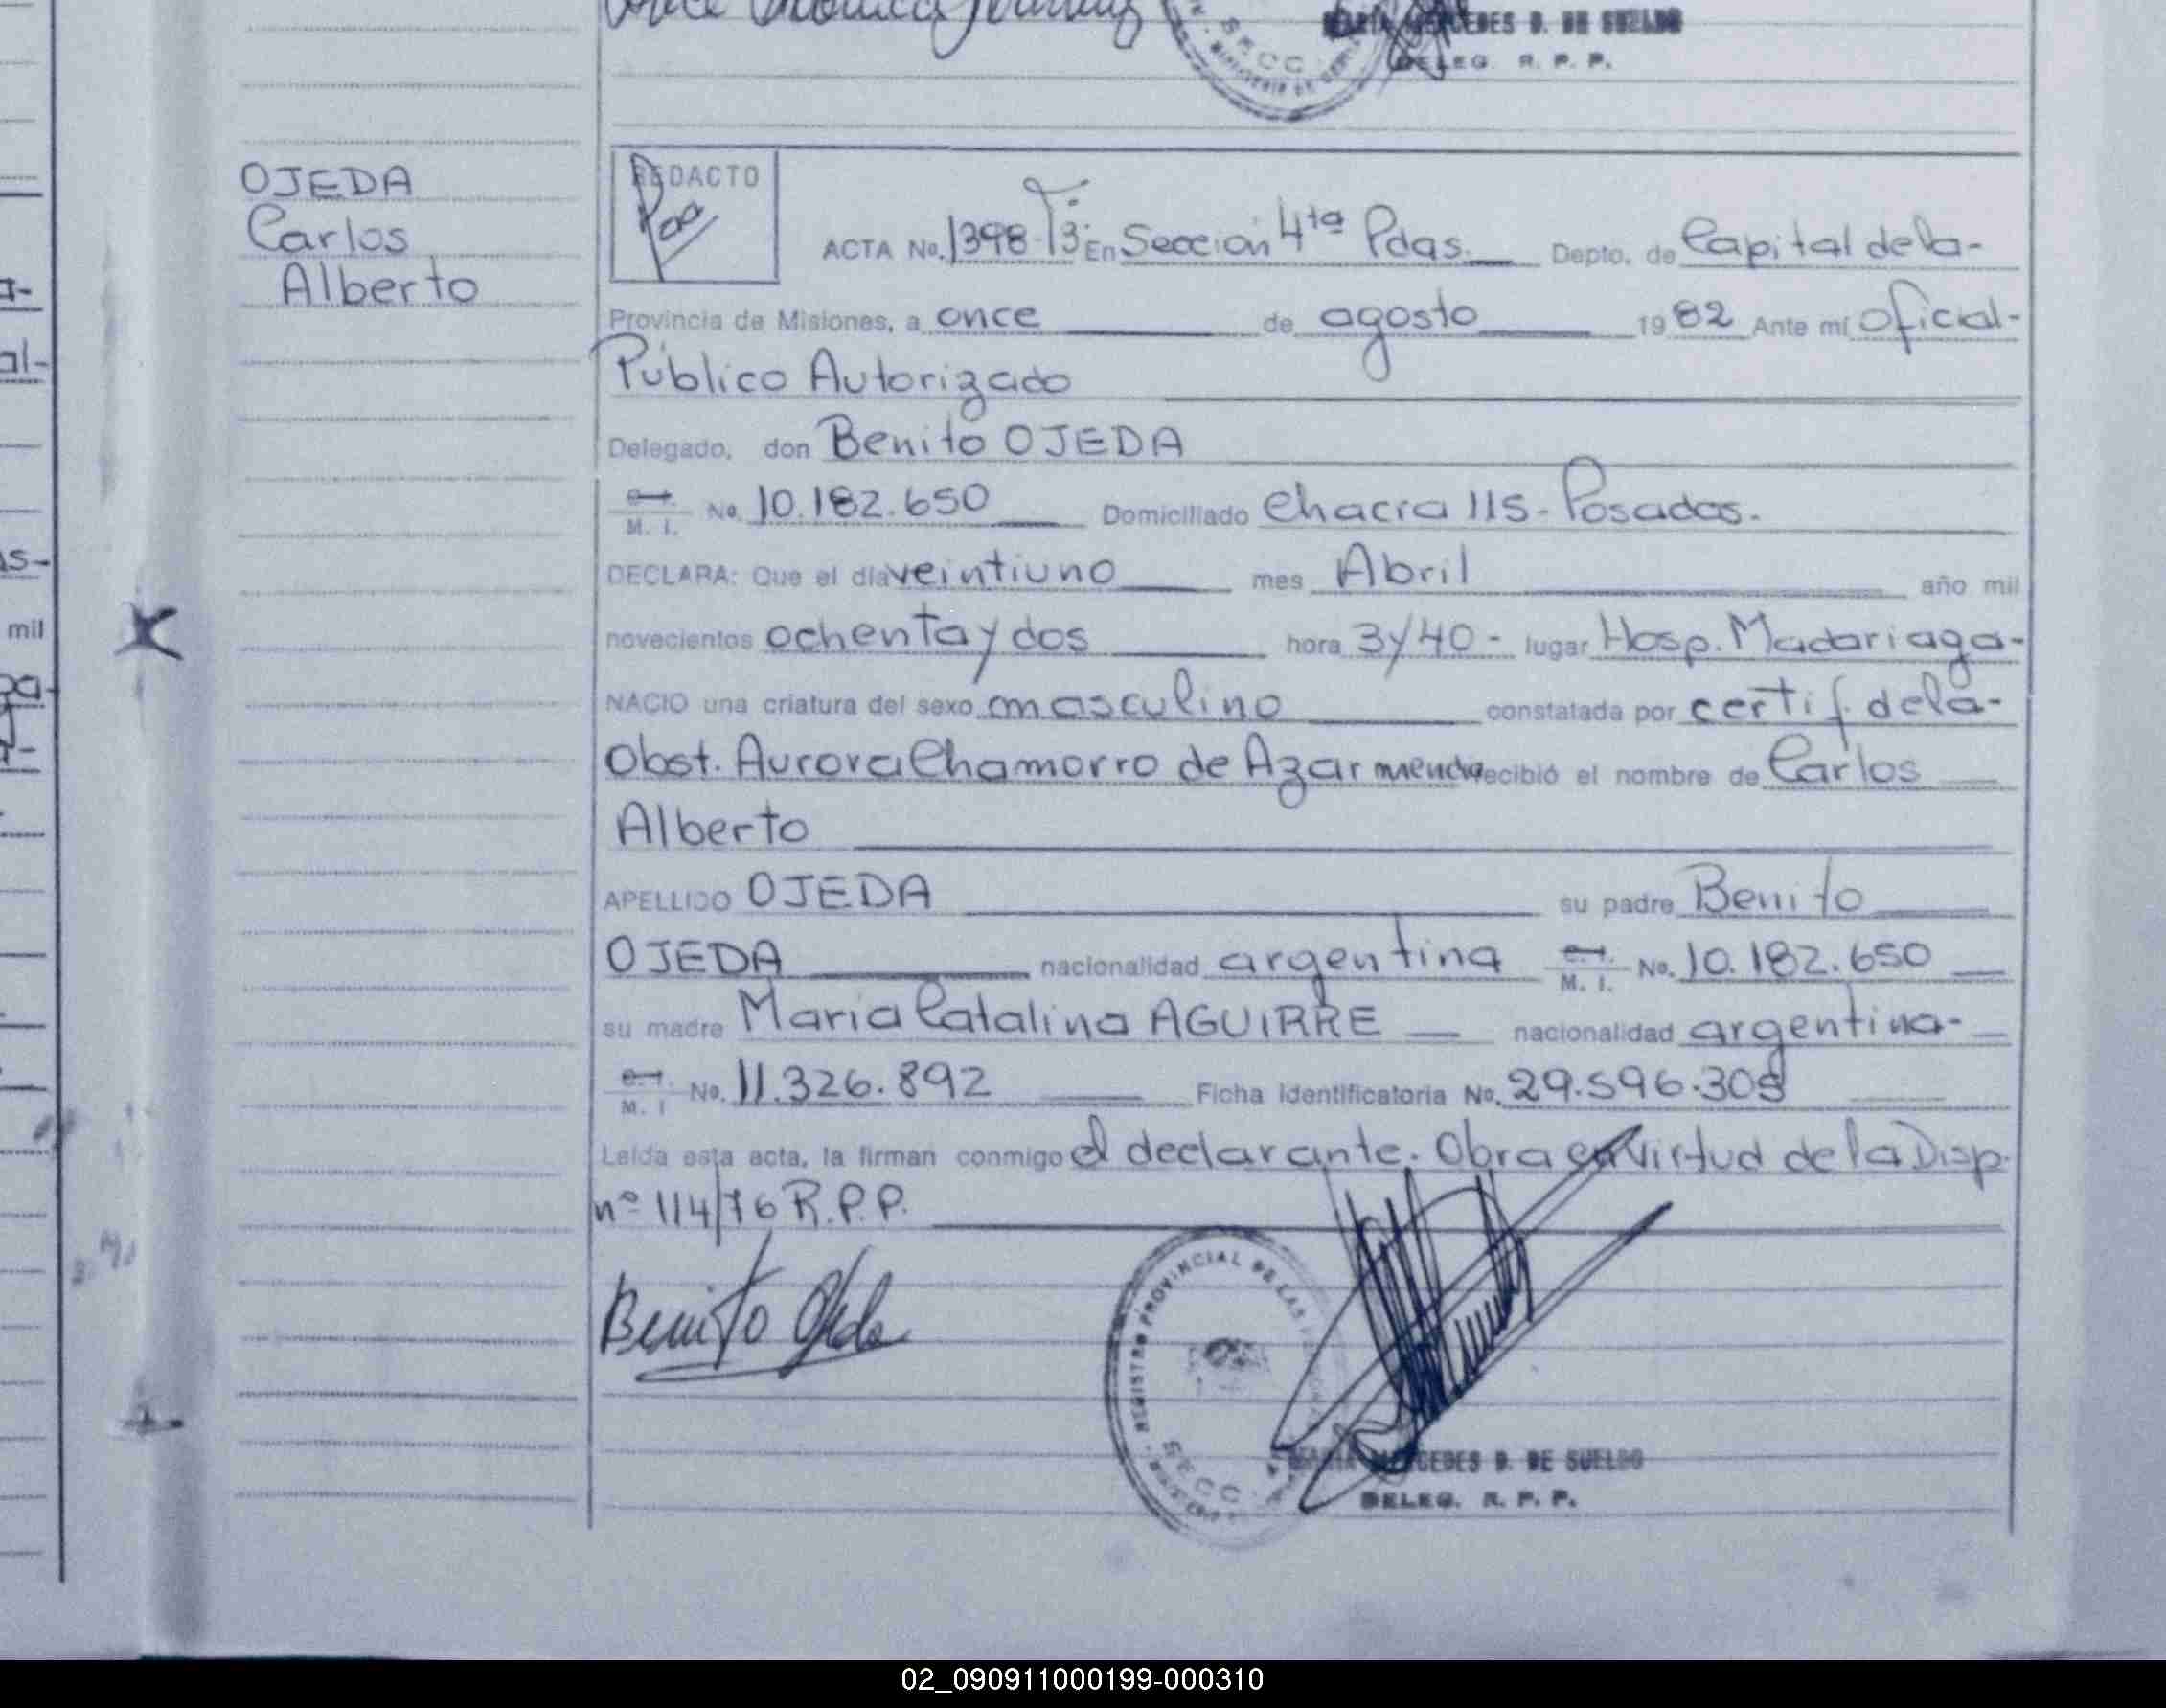 MERCEDES D. DE SUELDO
DELEG. R. P. P.
SECC
OJEDA
Carlos
Alberto
REDACTO
ACTA No. 1398 T3: En Sección 4ta Pdas. Depto. de Capital de la-
Provincia de Misiones, a once de agosto 1982 Ante mí Oficial-
Público Autorizado
Delegado, don Benito OJEDA
C.I. M. I. No. 10.182.650 Domiciliado Chacra 115-Posadas.
DECLARA: Que el día veintiuno mes Abril año mil
novecientos ochenta y dos hora 3y40- lugar Hosp. Madariaga-
NACIO una criatura del sexo masculino constatada por certif. de la-
Obst. Aurora Chamorro de Azarmendia recibió el nombre de Carlos
Alberto
APELLIDO OJEDA su padre Benito
OJEDA nacionalidad argentina C.I. M. I. No. 10.182.650
su madre Maria Catalina AGUIRRE nacionalidad argentina-
C.I. M. I No. 11.326.892 Ficha Identificatoria No. 29.596.305
Leída esta acta, la firman conmigo el declarante. Obra en virtud de la Disp.
nº 114/76 R.P.P.
Benito Ojeda
REGISTRO PROVINCIAL DE LAS
SECC
MARIA MERCEDES D. DE SUELDO
DELEG. R. P. P.
al-
mil
02_090911000199-000310